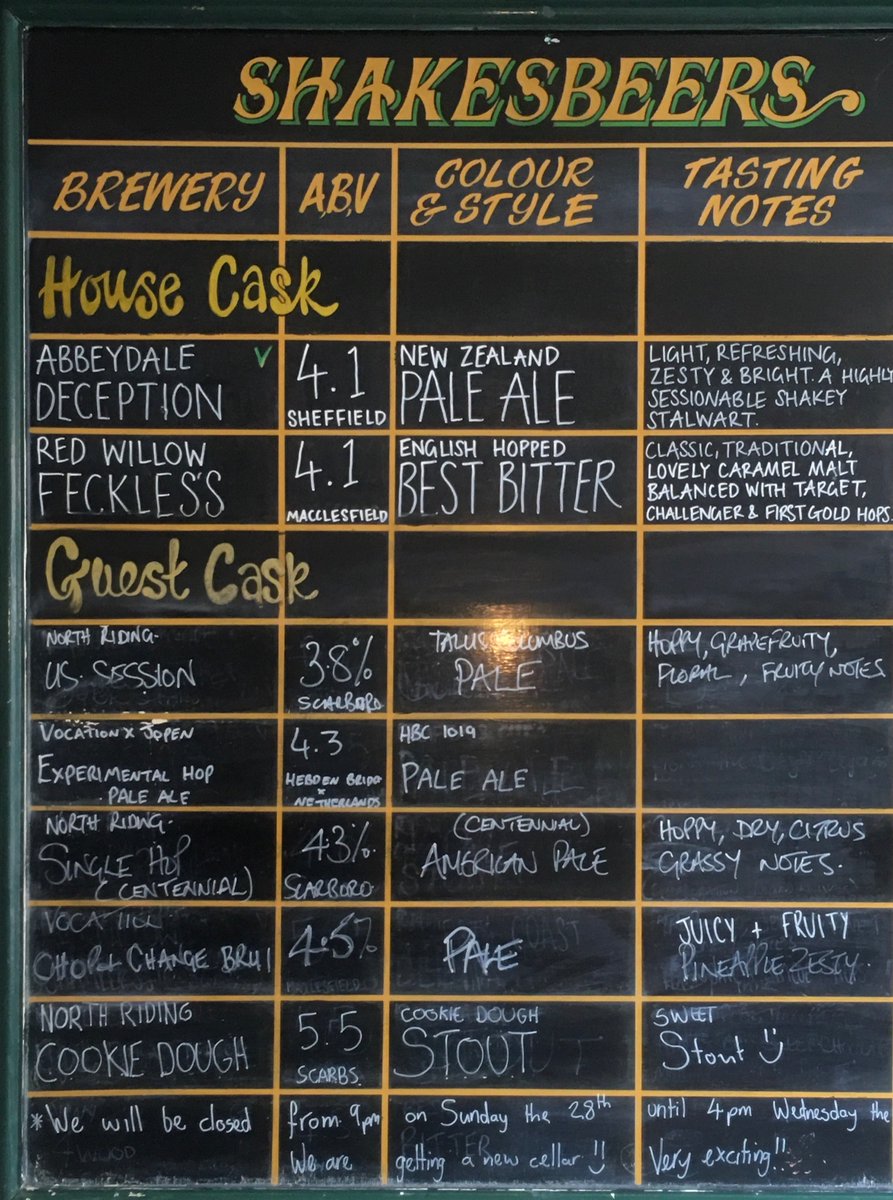 SHAKESBEERS
BREWERY ABV COLOUR & STYLE TASTING NOTES
House Cask
ABBEYDALE V
DECEPTION
4.1
SHEFFIELD
NEW ZEALAND
PALE ALE
LIGHT, REFRESHING,
ZESTY & BRIGHT. A HIGHLY
SESSIONABLE SHAKEY
STALWART.
RED WILLOW
FECKLESS
4.1
MACCLESFIELD
ENGLISH HOPPED
BEST BITTER
CLASSIC, TRADITIONAL,
LOVELY CARAMEL MALT
BALANCED WITH TARGET,
CHALLENGER & FIRST GOLD HOPS.
Guest Cask
NORTH RIDING-
US. SESSION
3.8%
SCARBORO
COLUMBUS
PALE
HOPPY, GRAPEFRUITY,
FLORAL, FRUITY NOTES
VOCATION X JOPEN
EXPERIMENTAL HOP
PALE ALE
4.3
HEBDEN BRIDG
x
NETHERLANDS
HBC 1019
PALE ALE
NORTH RIDING-
SINGLE HOP
(CENTENNIAL)
4.3%
SCARBORO
(CENTENNIAL)
AMERICAN PALE
HOPPY, DRY, CITRUS
GRASSY NOTES.
CHANGE
4.5%
PALE
JUICY + FRUITY
PINEAPPLE ZESTY.
NORTH RIDING
COOKIE DOUGH
5.5
SCARBS.
COOKIE DOUGH
STOUT
SWEET
Stout
*We will be closed from 9pm on Sunday the 28th until 4pm Wednesday the
We are getting a new cellar Very exciting!!